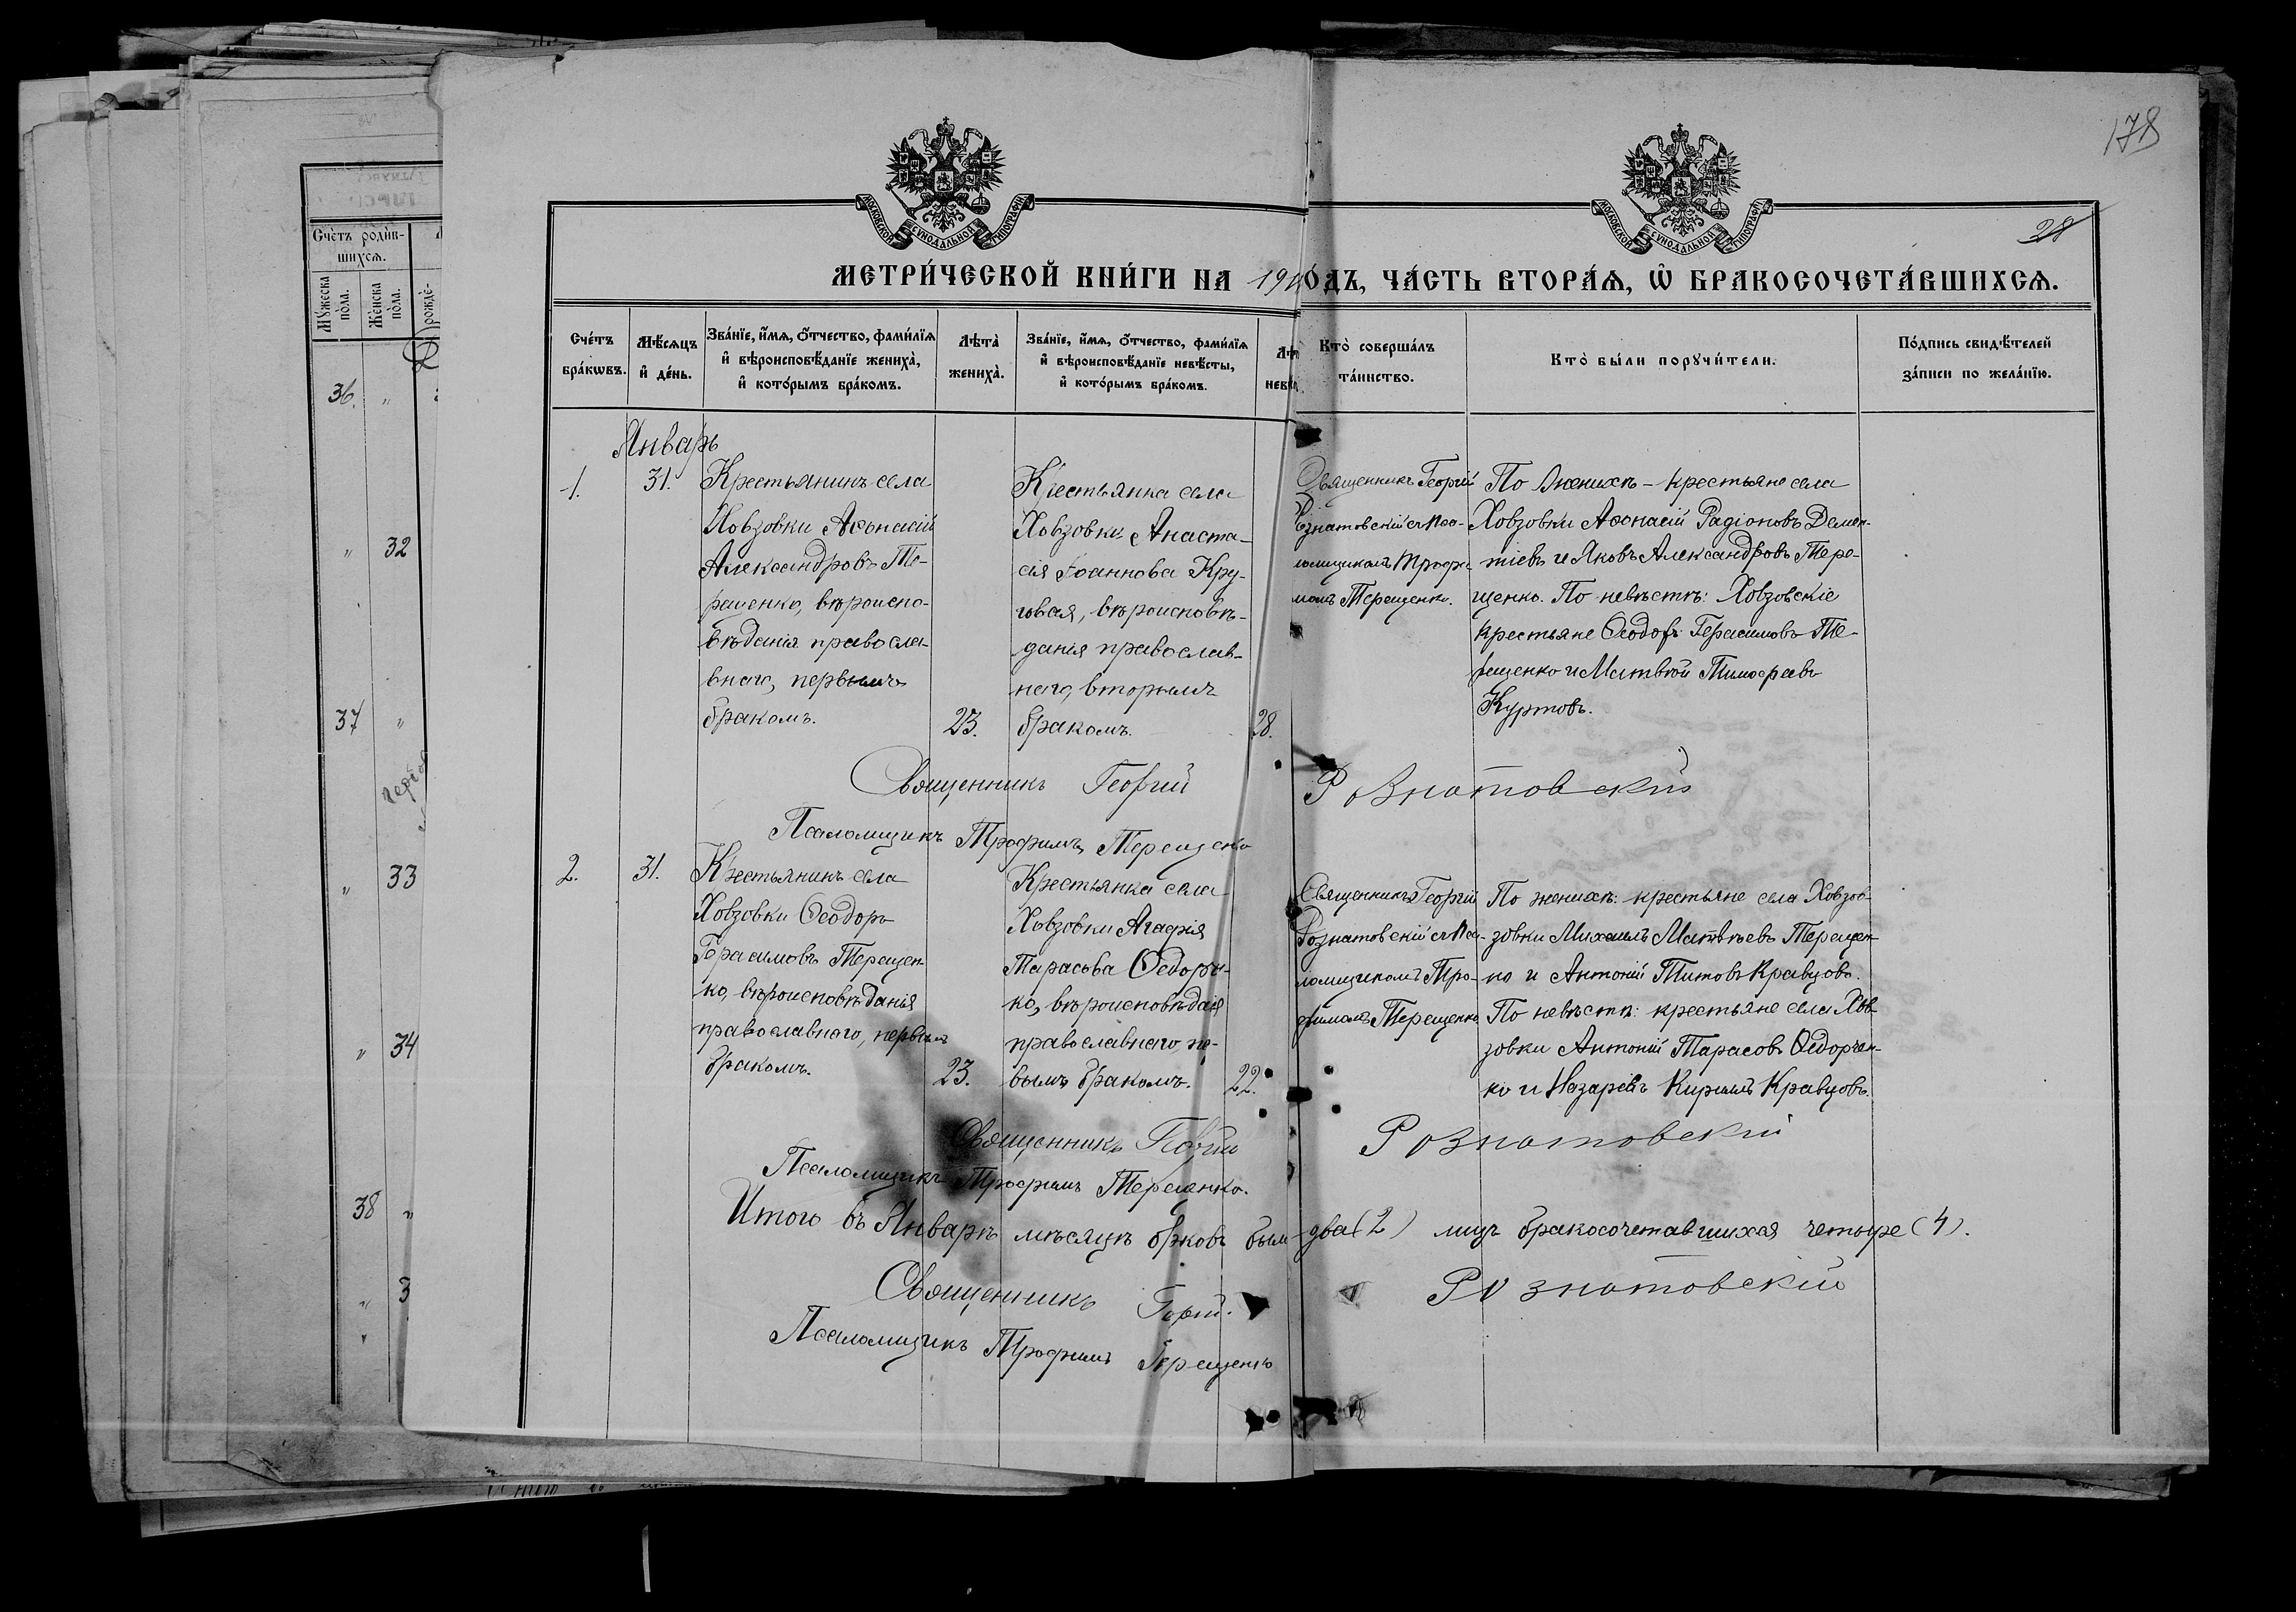 178
28
МОСКОВСКОЙ СѴНОДАЛЬНОЙ ТИПОГРАФІИ
МОСКОВСКОЙ СѴНОДАЛЬНОЙ ТИПОГРАФІИ
МЕТРИ́ЧЕСКОЙ КНИ́ГИ НА 191 ГО́ДЪ, ЧА́СТЬ ВТОРА́Ѧ, Ѿ БРАКОСОЧЕТА́ВШИХСѦ.
Сче́тъ бра́кѡвъ.
Мѣ́сѧцъ и҆ де́нь.
Зва́нїе, и҆́мѧ, о҆́тчество, фами́лїѧ и҆ вѣроисповѣ́данїе жениха̀, и҆ кото́рымъ бра́комъ.
Лѣта̀ жениха̀.
Зва́нїе, и҆́мѧ, о҆́тчество, фами́лїѧ и҆ вѣроисповѣ́данїе невѣ́сты, и҆ кото́рымъ бра́комъ.
Кто̀ соверша́лъ та́инство.
Кто̀ бы́ли порꙋчи́тели.
По́дпись свидѣ́телей за́писи по жела́нїю.
Январь
1.
31.
Крестьянинъ села
Ховзовки Аѳонасій
Александровъ Те-
рещенко, вѣроиспо-
вѣданія правосла-
внаго, первымъ
бракомъ.
23.
Крестьянка села
Ховзовки Анаста-
сія Іоаннова Кру-
говая, вѣроисповѣ-
данія православ-
наго, вторымъ
бракомъ.
28.
Священникъ Георгій
Рознатовскій съ Пса-
ломщикомъ Трофи-
момъ Терещенко.
По Женихѣ - крестьяне села
Ховзовки Аѳонасій Радіоновъ Демен-
тіевъ и Яковъ Александровъ Тере-
щенко. По невѣстѣ: Ховзовскіе
крестьяне Ѳеодоръ Герасимовъ Те-
рещенко и Матвѣй Тимофеевъ
Куртовъ.
Священникъ Георгій Рознатовскій
Псаломщикъ Трофимъ Терещенко
2.
31.
Крестьянинъ села
Ховзовки Ѳеодоръ
Герасимовъ Терещен-
ко, вѣроисповѣданія
православнаго, первымъ
бракомъ.
23.
Крестьянка села
Ховзовки Агафія
Тарасова Ѳедорч-
ко, вѣроисповѣдаія
православнаго, пе-
вымъ бракомъ.
22.
Священникъ Георгій
Рознатовскій съ Пса-
ломщикомъ Тро-
фимомъ Терещенко
По женихѣ: крестьяне села Ховзов-
зовки Михаилъ Матвѣевъ Терещен-
ко и Антоній Титовъ Кравцовъ.
По невѣстѣ: крестьяне села Хов-
зовки Антоній Тарасовъ Ѳедорчен-
ко и Назарій Кирилъ Кравцовъ.
Священникъ Георгій Рознатовскій
Псаломщикъ Трофимъ Терещенко.
Итого въ Январѣ мѣсяцѣ брковъ было два (2) лицъ бракосочетавшихся четыре (4).
Священникъ Георгій. Рознатовскій
Псаломщикъ Трофимъ Терещенко
Сче́тъ роди́в-
шихсѧ.
Мꙋ́жеска по́ла.
Же́нска по́ла.
36.
32
37
33
34
38
3